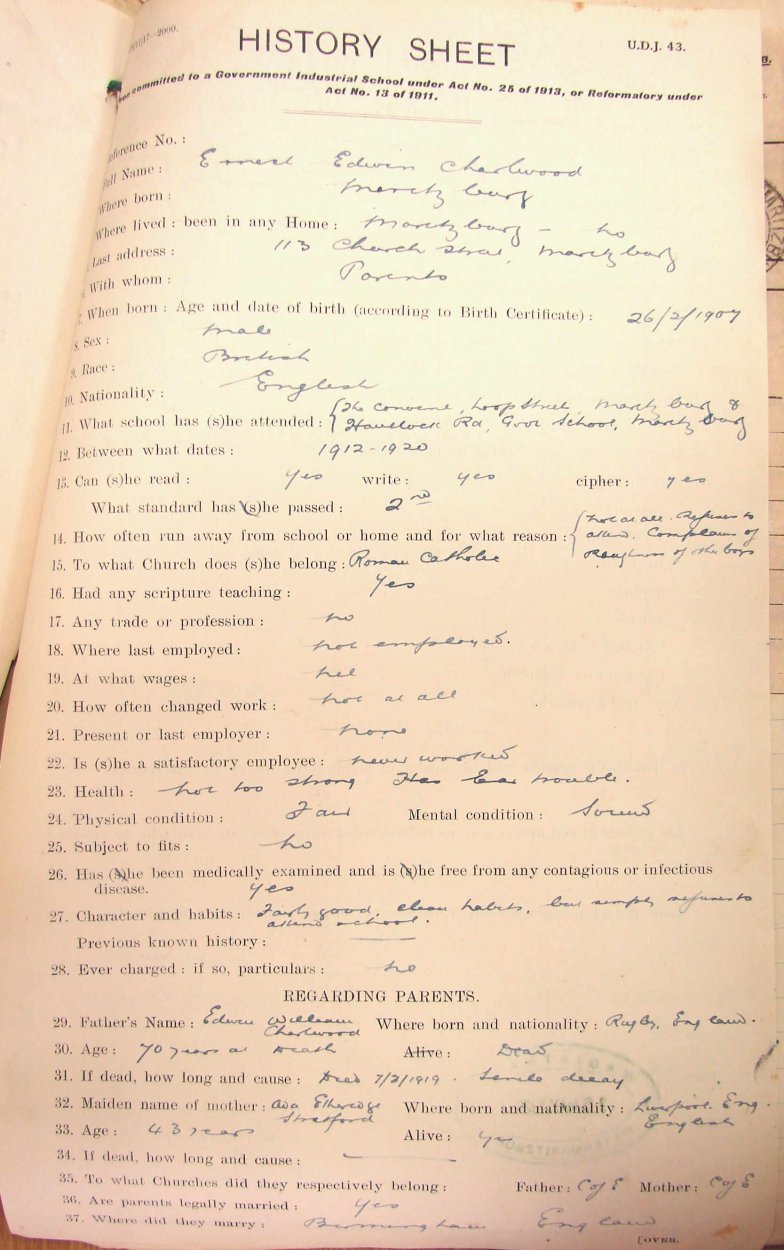 HISTORY SHEET
U.D.J. 43.
committed to a Government Industrial School under Act No. 25 of 1913, or Reformatory under
Act No. 13 of 1911.
Reference No. :
Full Name : Ernest Edwin Charlwood
Where born : Maritzburg
Where lived : been in any Home : Maritzburg – no
Last address : 113 Church Street, Maritzburg
With whom : Parents
7. When born : Age and date of birth (according to Birth Certificate) : 26/2/1907
8. Sex : Male
9. Race : British
10. Nationality : English
11. What school has (s)he attended : The Convent, Loop Street, Maritzburg &
Havelock Rd, Govt School, Maritzburg
12. Between what dates : 1912-1920
13. Can (s)he read : Yes write : Yes cipher : Yes
What standard has (s)he passed : 2nd
14. How often run away from school or home and for what reason : Not at all. Refuses to
attend. Complains of
Roughness of other boys
15. To what Church does (s)he belong : Roman Catholic
16. Had any scripture teaching : Yes
17. Any trade or profession : no
18. Where last employed : not employed.
19. At what wages : nil
20. How often changed work : not at all
21. Present or last employer : none
22. Is (s)he a satisfactory employee : never worked
23. Health : not too strong Has Ear trouble.
24. Physical condition : Fair Mental condition : Sound
25. Subject to fits : no
26. Has (s)he been medically examined and is (s)he free from any contagious or infectious
disease. Yes
27. Character and habits : Fairly good, clean habits, but simply refuses to
attend school.
Previous known history : ——
28. Ever charged : if so, particulars : no
REGARDING PARENTS.
29. Father's Name : Edwin William Charlwood Where born and nationality : Rugby, England.
30. Age : 70 years at Death Alive : Dead
31. If dead, how long and cause : Died 7/2/1919. Senile decay
32. Maiden name of mother : Ada Etheredge Stratford Where born and nationality : Liverpool. Eng.
English
33. Age : 43 years Alive : yes
34. If dead, how long and cause : ——
35. To what Churches did they respectively belong : Father : C of E Mother : C of E
36. Are parents legally married : Yes
37. Where did they marry : Birmingham England
[OVER.